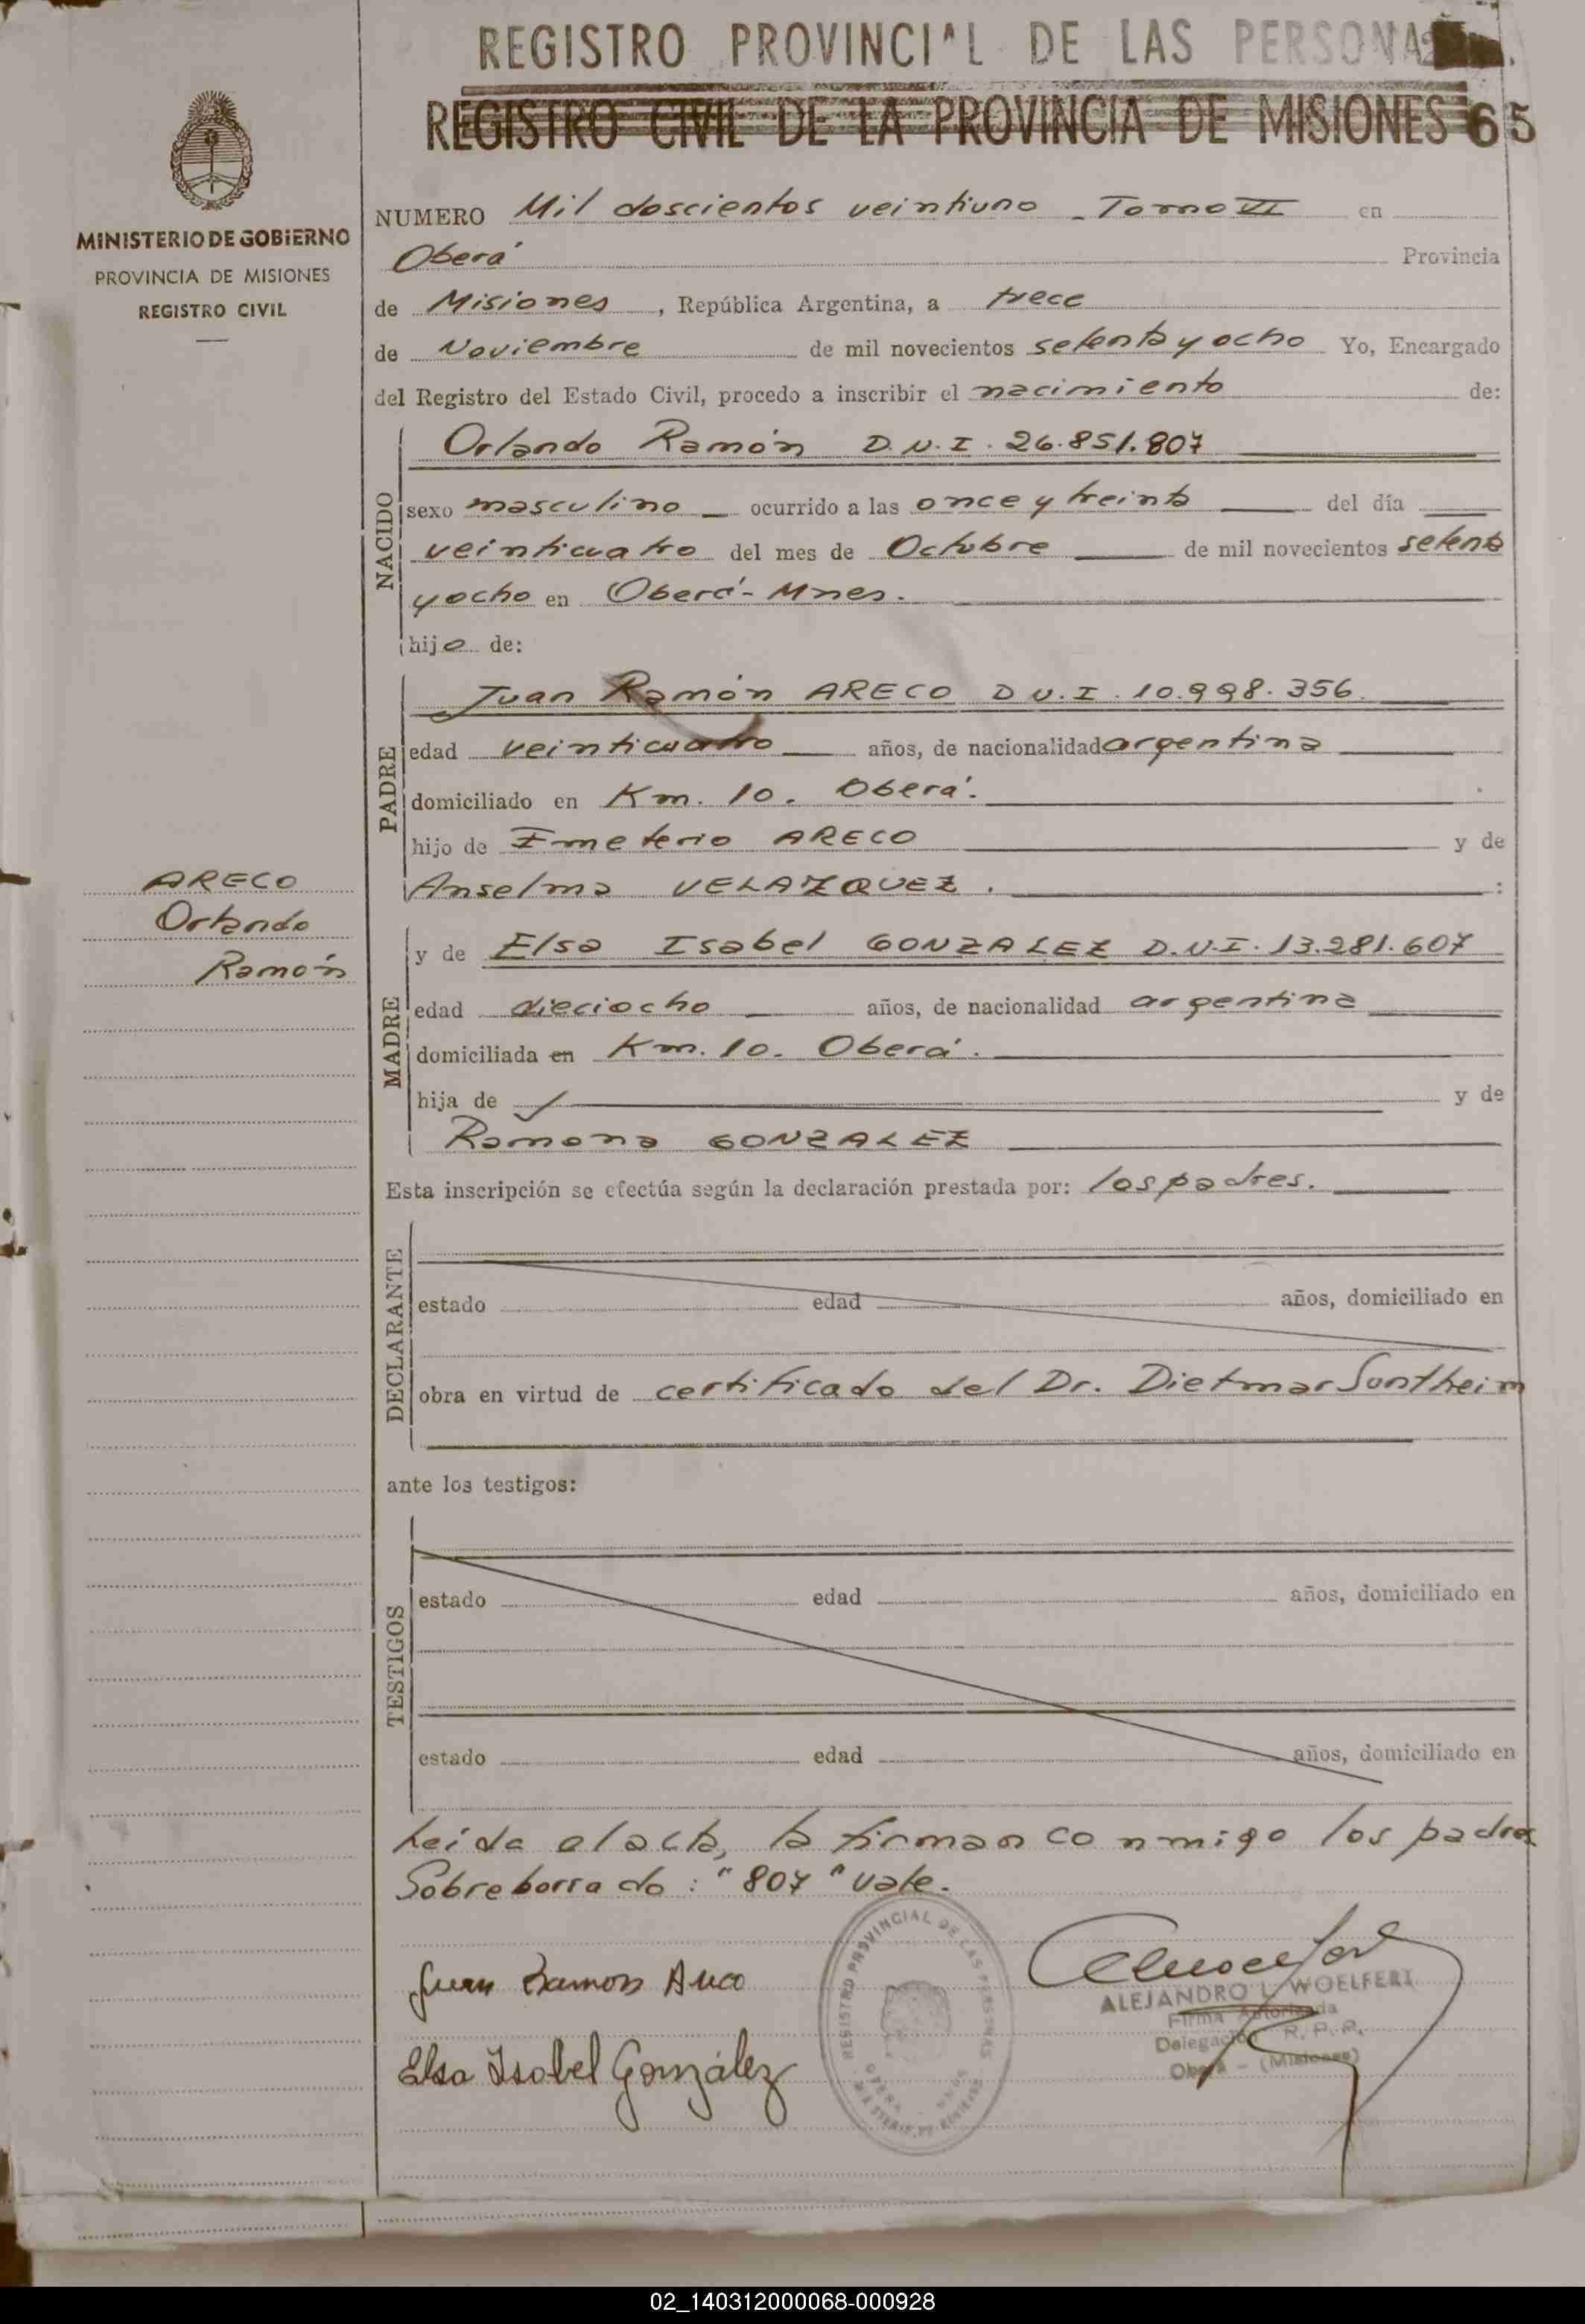 REGISTRO PROVINCIAL DE LAS PERSONAS
REGISTRO CIVIL DE LA PROVINCIA DE MISIONES 65
MINISTERIO DE GOBIERNO
PROVINCIA DE MISIONES
REGISTRO CIVIL
NUMERO Mil doscientos veintiuno - Tomo VI en
Oberá Provincia
de Misiones, República Argentina, a trece
de Noviembre de mil novecientos setenta y ocho Yo, Encargado
del Registro del Estado Civil, procedo a inscribir el nacimiento de:
NACIDO
Orlando Ramón D.N.I. 26.851.807
sexo masculino ocurrido a las once y treinta del día
veinticuatro del mes de Octubre de mil novecientos setenta
y ocho en Oberá - Mnes.
hijo de:
PADRE
Juan Ramón ARECO D.N.I. 10.998.356
edad veinticuatro años, de nacionalidad argentina
domiciliado en Km. 10. Oberá.
hijo de Emeterio ARECO y de
Anselma VELAZQUEZ.:
ARECO
Orlando
Ramón
MADRE
y de Elsa Isabel GONZALEZ D.N.I. 13.281.607
edad dieciocho años, de nacionalidad argentina
domiciliada en Km. 10. Oberá.
hija de y de
Ramona GONZALEZ
Esta inscripción se efectúa según la declaración prestada por: los padres.
DECLARANTE
estado edad años, domiciliado en
obra en virtud de certificado del Dr. Dietmar Sontheim
ante los testigos:
TESTIGOS
estado edad años, domiciliado en
estado edad años, domiciliado en
Leída el acta, la firman conmigo los padres
Sobreborrado: "807" vale.
Juan Ramon Areco
Elsa Isabel González
REGISTRO PROVINCIAL DE LAS PERSONAS
ALEJANDRO L. WOELFERT
Firma Autorizada
Delegación R. P. P.
Oberá - (Misiones)
02_140312000068-000928